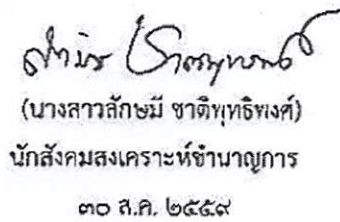 (นางสาวลักษมี ชาติพุทธิพงศ์)
นักสังคมสงเคราะห์ชำนาญการ
๓๐ ส.ค. ๒๕๕๙